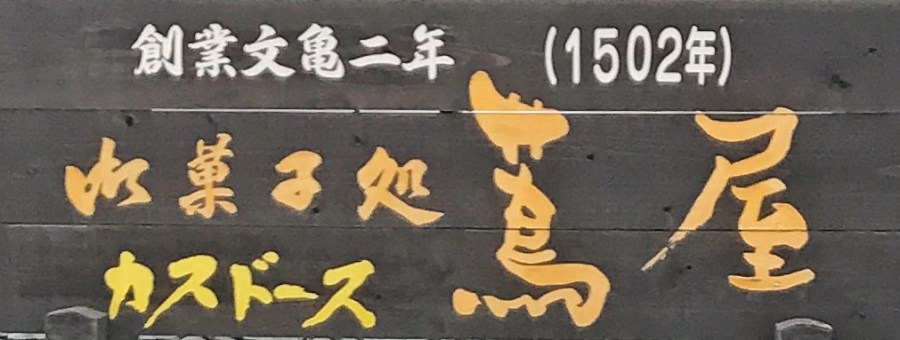 創業文亀二年 (1502年)
御菓子処 蔦屋
カスドース